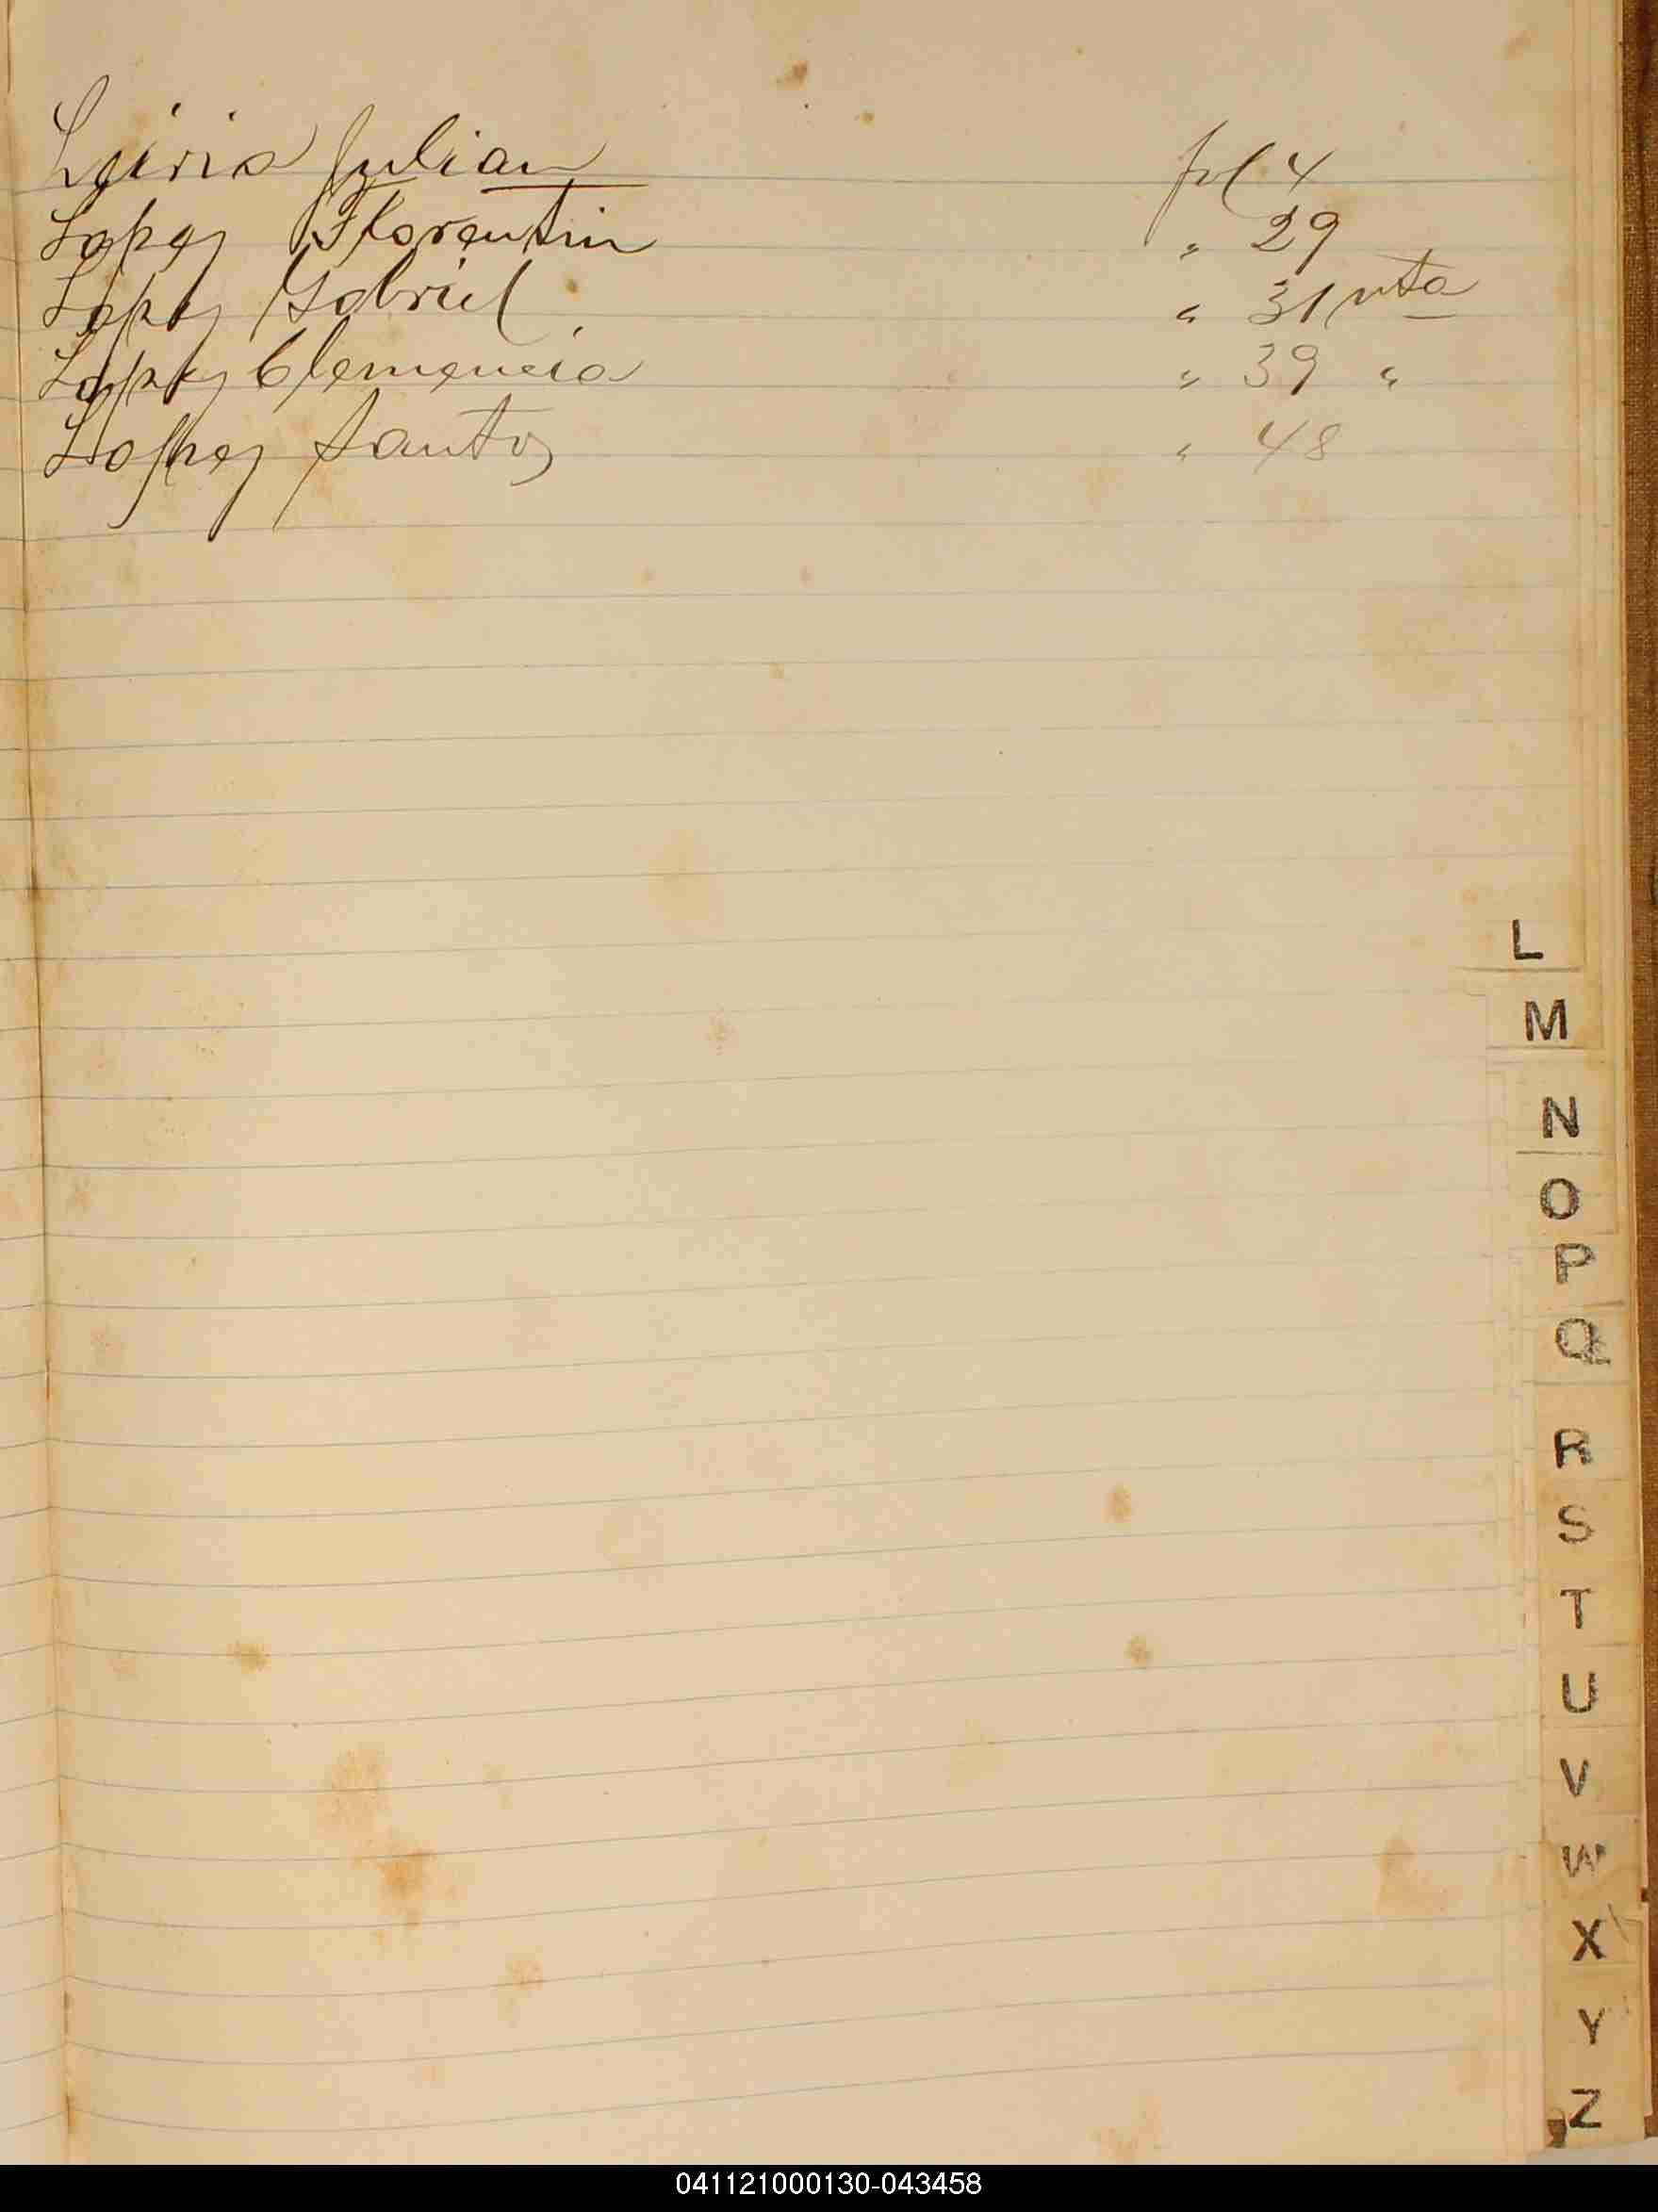 Leiria Julian fol 4
Lopez Florentin " 29
Lopez Gabriel " 31 vta
Lopez Clemencia " 39 "
Lopez Santos " 48
L
M
N
O
P
Q
R
S
T
U
V
W
X
Y
Z
041121000130-043458